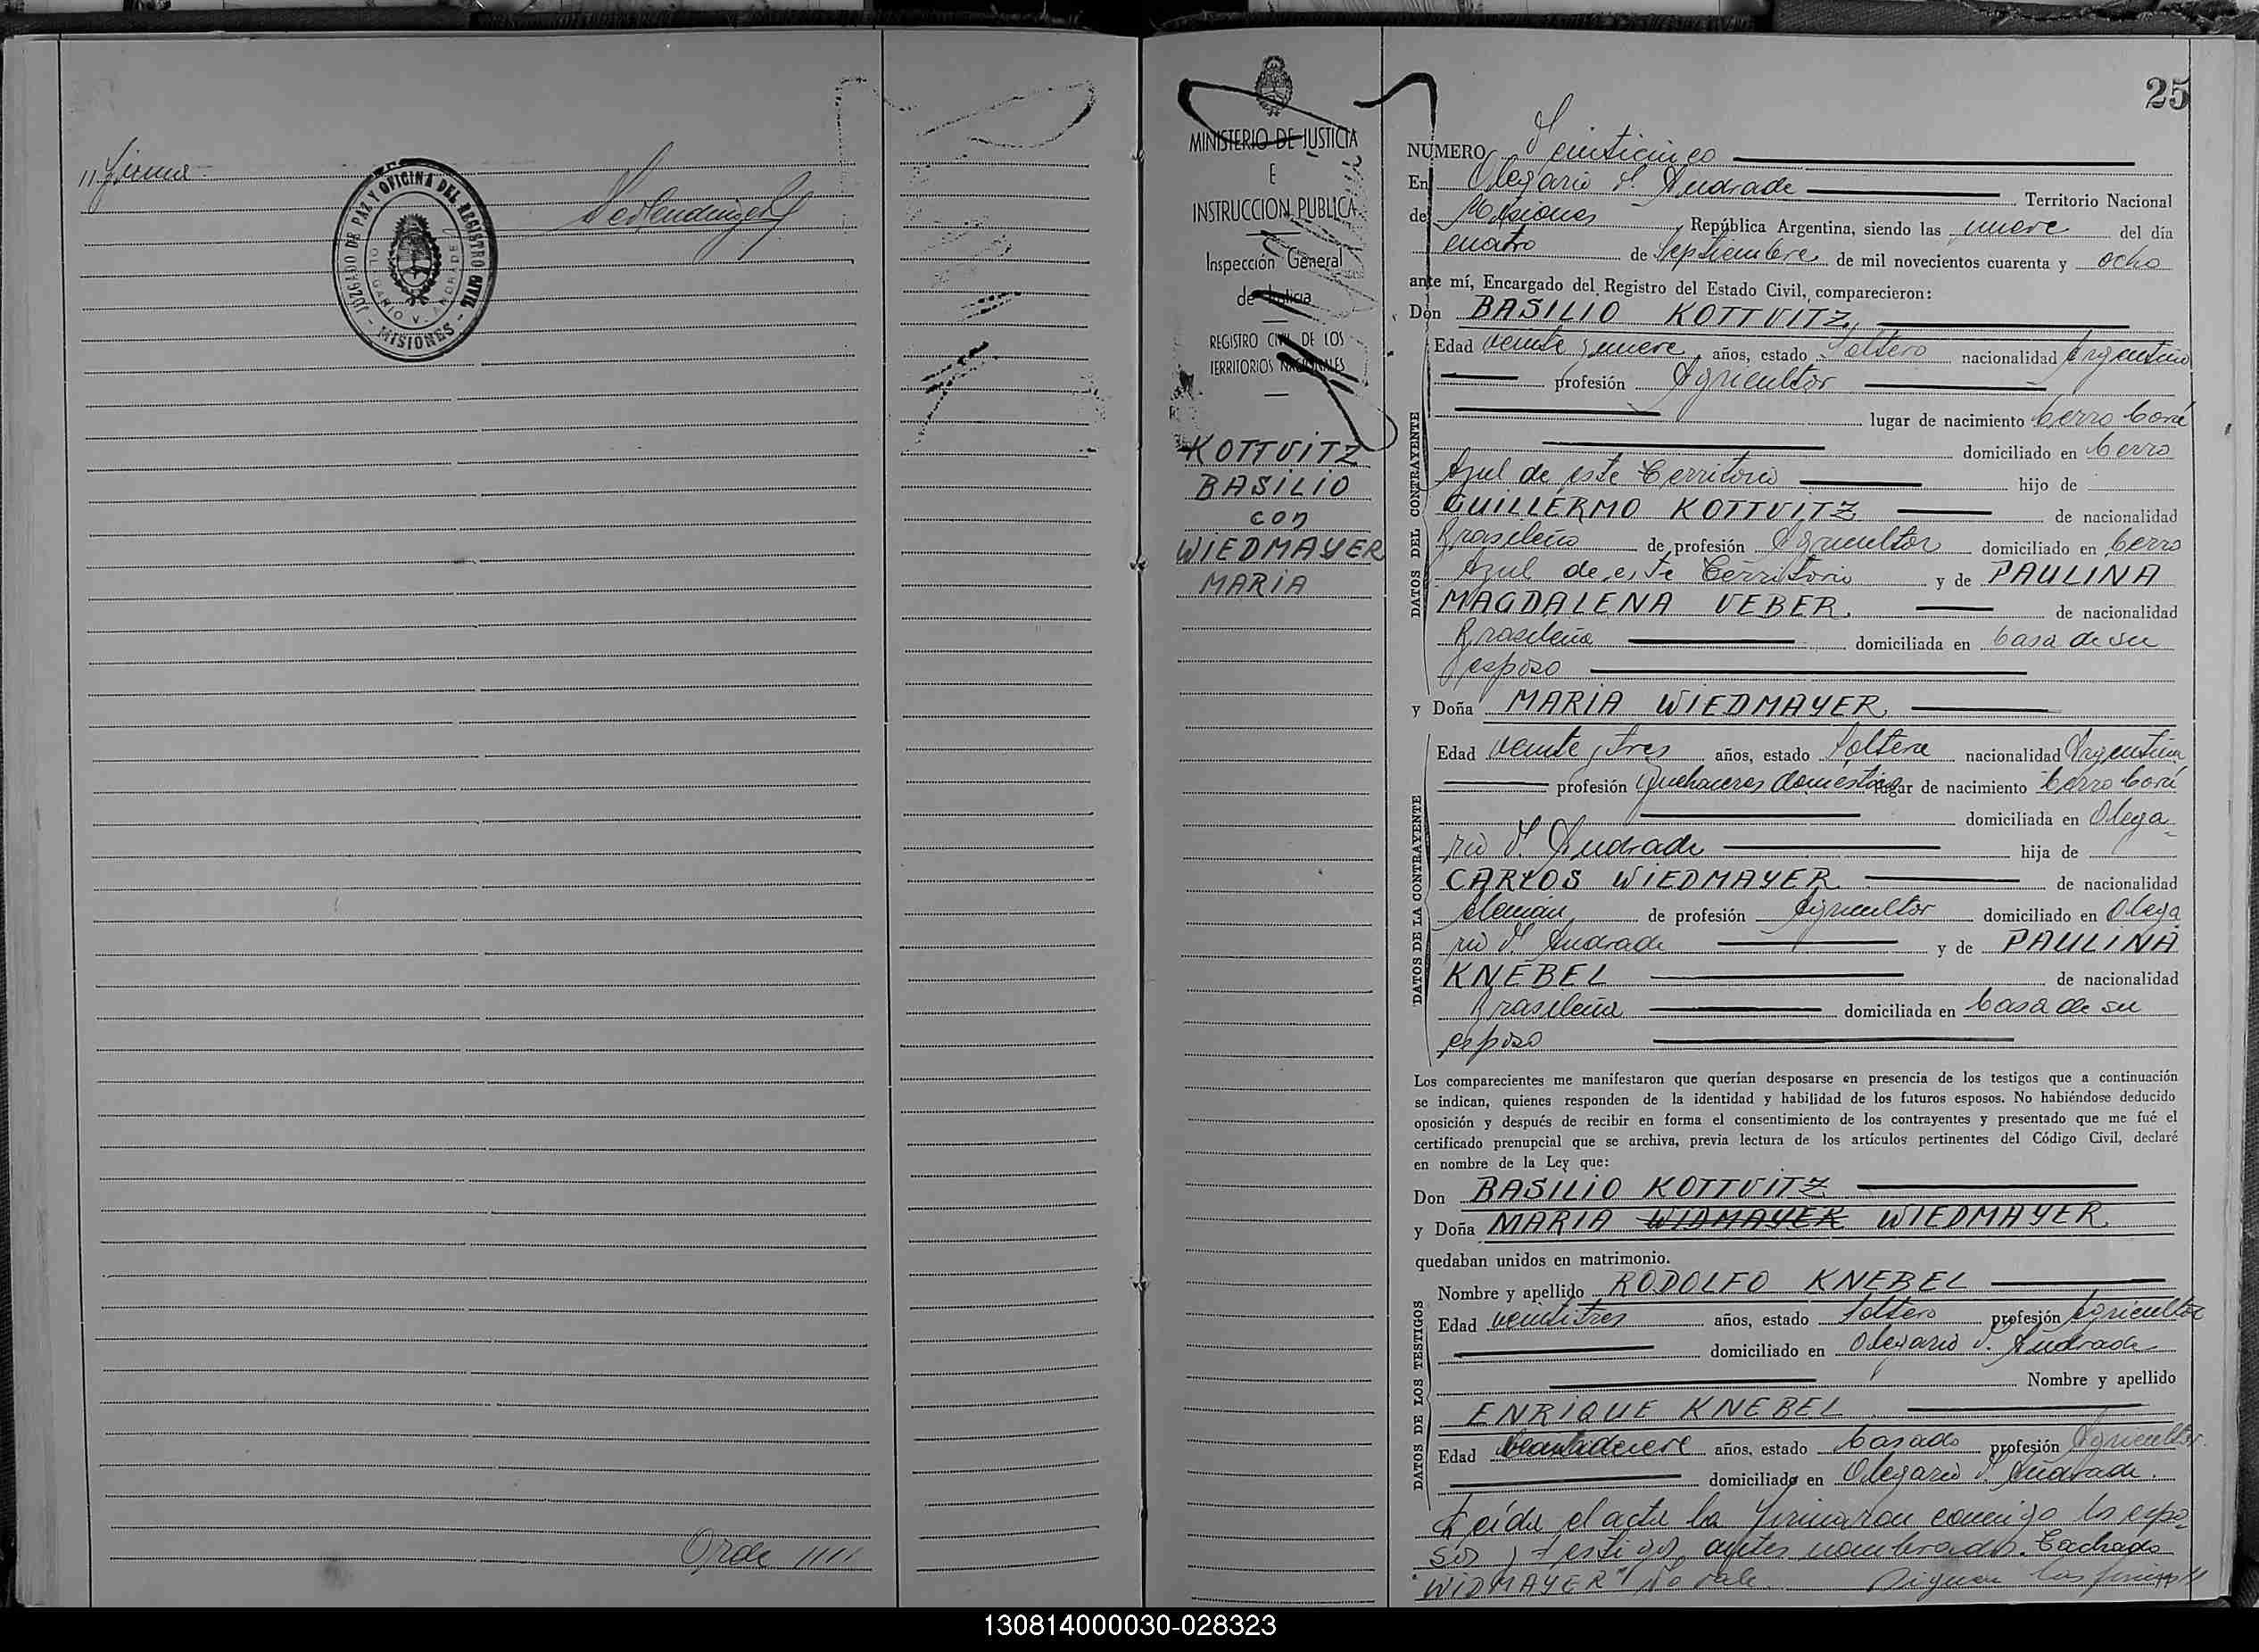 11 firma
JUZGADO DE PAZ Y OFICINA DEL REGISTRO CIVIL
OLEGARIO V. ANDRADE
- MISIONES -
Orde 1111
MINISTERIO DE JUSTICIA
E
INSTRUCCION PUBLICA
Inspección General
de Justicia
REGISTRO CIVIL DE LOS
TERRITORIOS NACIONALES
KOTTVITZ
BASILIO
con
WIEDMAYER
MARIA
25
NUMERO Veinticinco
En Olegario V. Andrade Territorio Nacional
de Misiones, República Argentina, siendo las nueve del día
cuatro de Septiembre de mil novecientos cuarenta y ocho
ante mí, Encargado del Registro del Estado Civil, comparecieron:
Don BASILIO KOTTVITZ,
DATOS DEL CONTRAYENTE
Edad veinte y nueve, años, estado Soltero nacionalidad Argentino
profesión Agricultor
lugar de nacimiento Cerro Corá
domiciliado en Cerro
Azul de este Territorio hijo de
GUILLERMO KOTTVITZ de nacionalidad
Brasileño de profesión Agricultor domiciliado en Cerro
Azul de este Territorio y de PAULINA
MAGDALENA VEBER. de nacionalidad
Brasileña domiciliada en Casa de su
esposo
y Doña MARIA WIEDMAYER,
DATOS DE LA CONTRAYENTE
Edad veinte y tres años, estado Soltera nacionalidad Argentina
profesión Quehaceres domésticos lugar de nacimiento Cerro Corá
domiciliada en Olega-
rio V. Andrade hija de
CARLOS WIEDMAYER de nacionalidad
Alemán, de profesión Agricultor domiciliado en Olega
rio V. Andrade y de PAULINA
KNEBEL de nacionalidad
Brasileña domiciliada en Casa de su
esposo
Los comparecientes me manifestaron que querían desposarse en presencia de los testigos que a continuación
se indican, quienes responden de la identidad y habilidad de los futuros esposos. No habiéndose deducido
oposición y después de recibir en forma el consentimiento de los contrayentes y presentado que me fué el
certificado prenupcial que se archiva, previa lectura de los artículos pertinentes del Código Civil, declaré
en nombre de la Ley que:
Don BASILIO KOTTVITZ
y Doña MARIA WIDMAYER WIEDMAYER,
quedaban unidos en matrimonio.
DATOS DE LOS TESTIGOS
Nombre y apellido RODOLFO KNEBEL
Edad veintitres años, estado Soltero profesión Agricultor
domiciliado en Olegario V. Andrade
Nombre y apellido
ENRIQUE KNEBEL
Edad años, estado Casado profesión Agricultor.
domiciliado en Olegario V. Andrade.
Leída el acta la firmaron conmigo los espo-
sos y testigos antes nombrados. Tachado
"WIDMAYER" No vale. Siguen las firmas 11
130814000030-028323